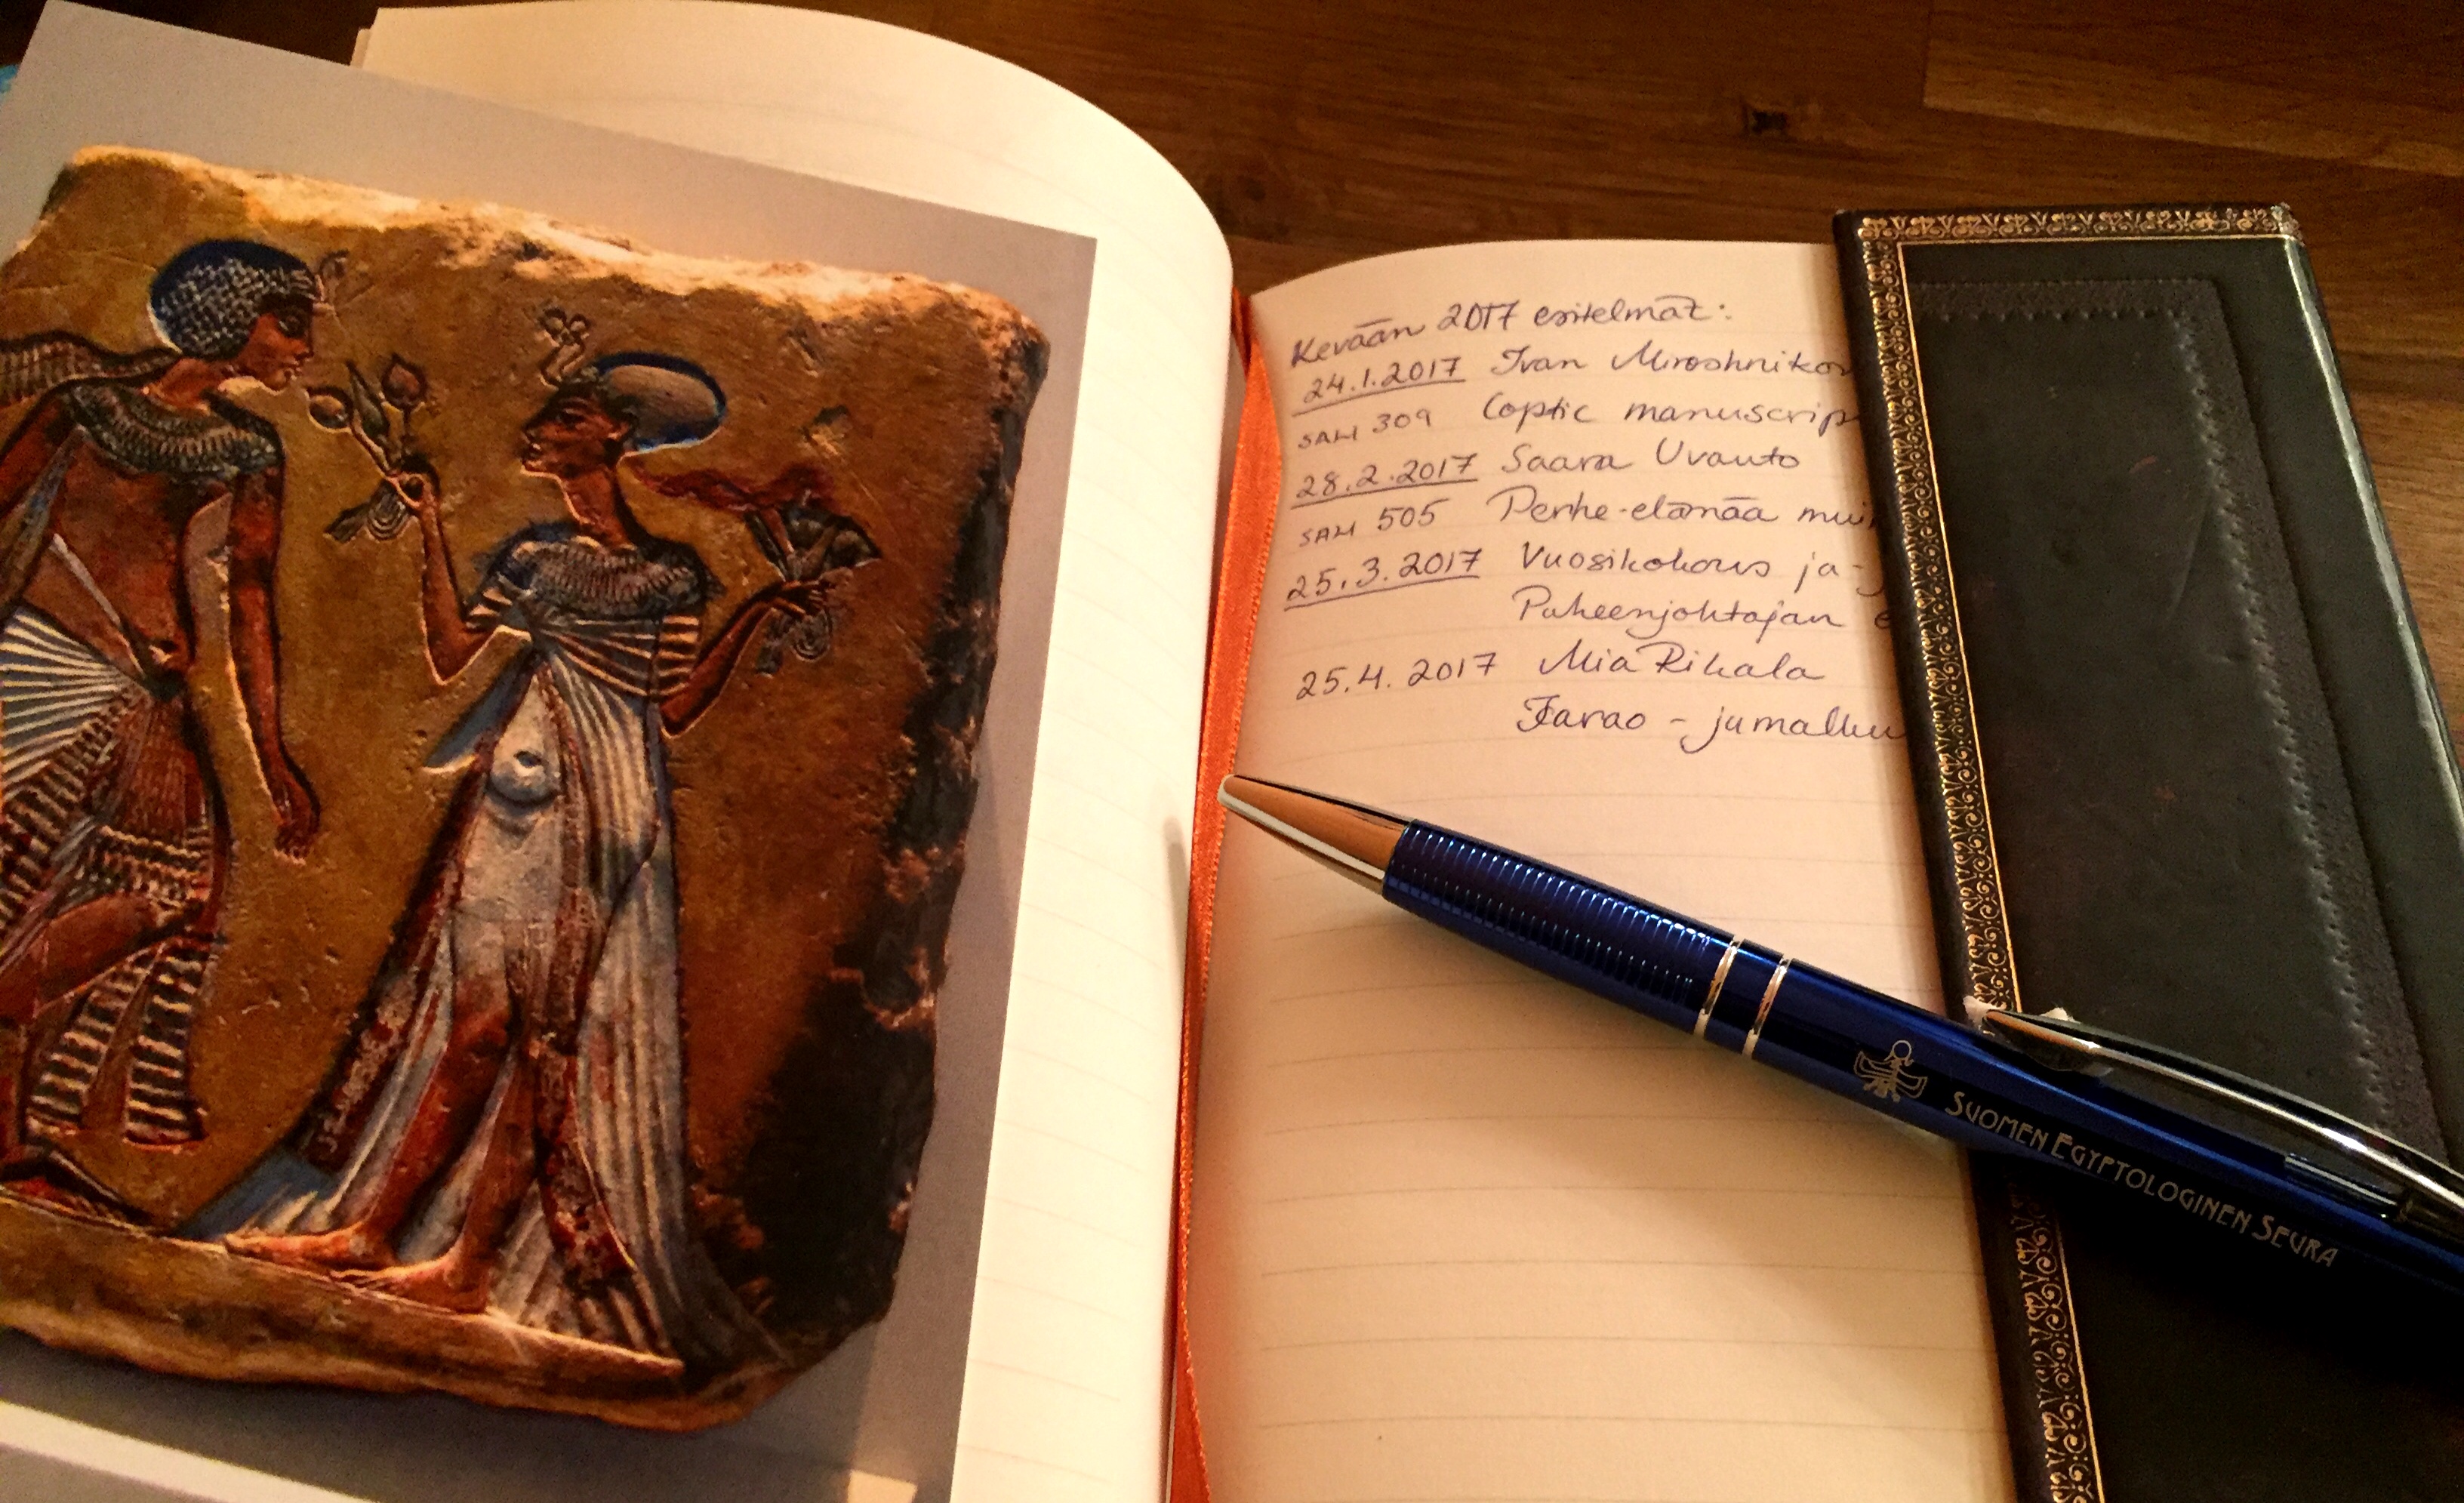 Kevään 2017 esitelmät:
24.1.2017 Ivan Miroshnikov
SALI 309 Coptic manuscrip
28.2.2017 Saara Uvanto
SALI 505 Perhe-elämää mui
25.3.2017 Vuosikokous ja
Puheenjohtajan e
25.4.2017 Mia Rikala
Farao - jumalku
SUOMEN EGYPTOLOGINEN SEURA